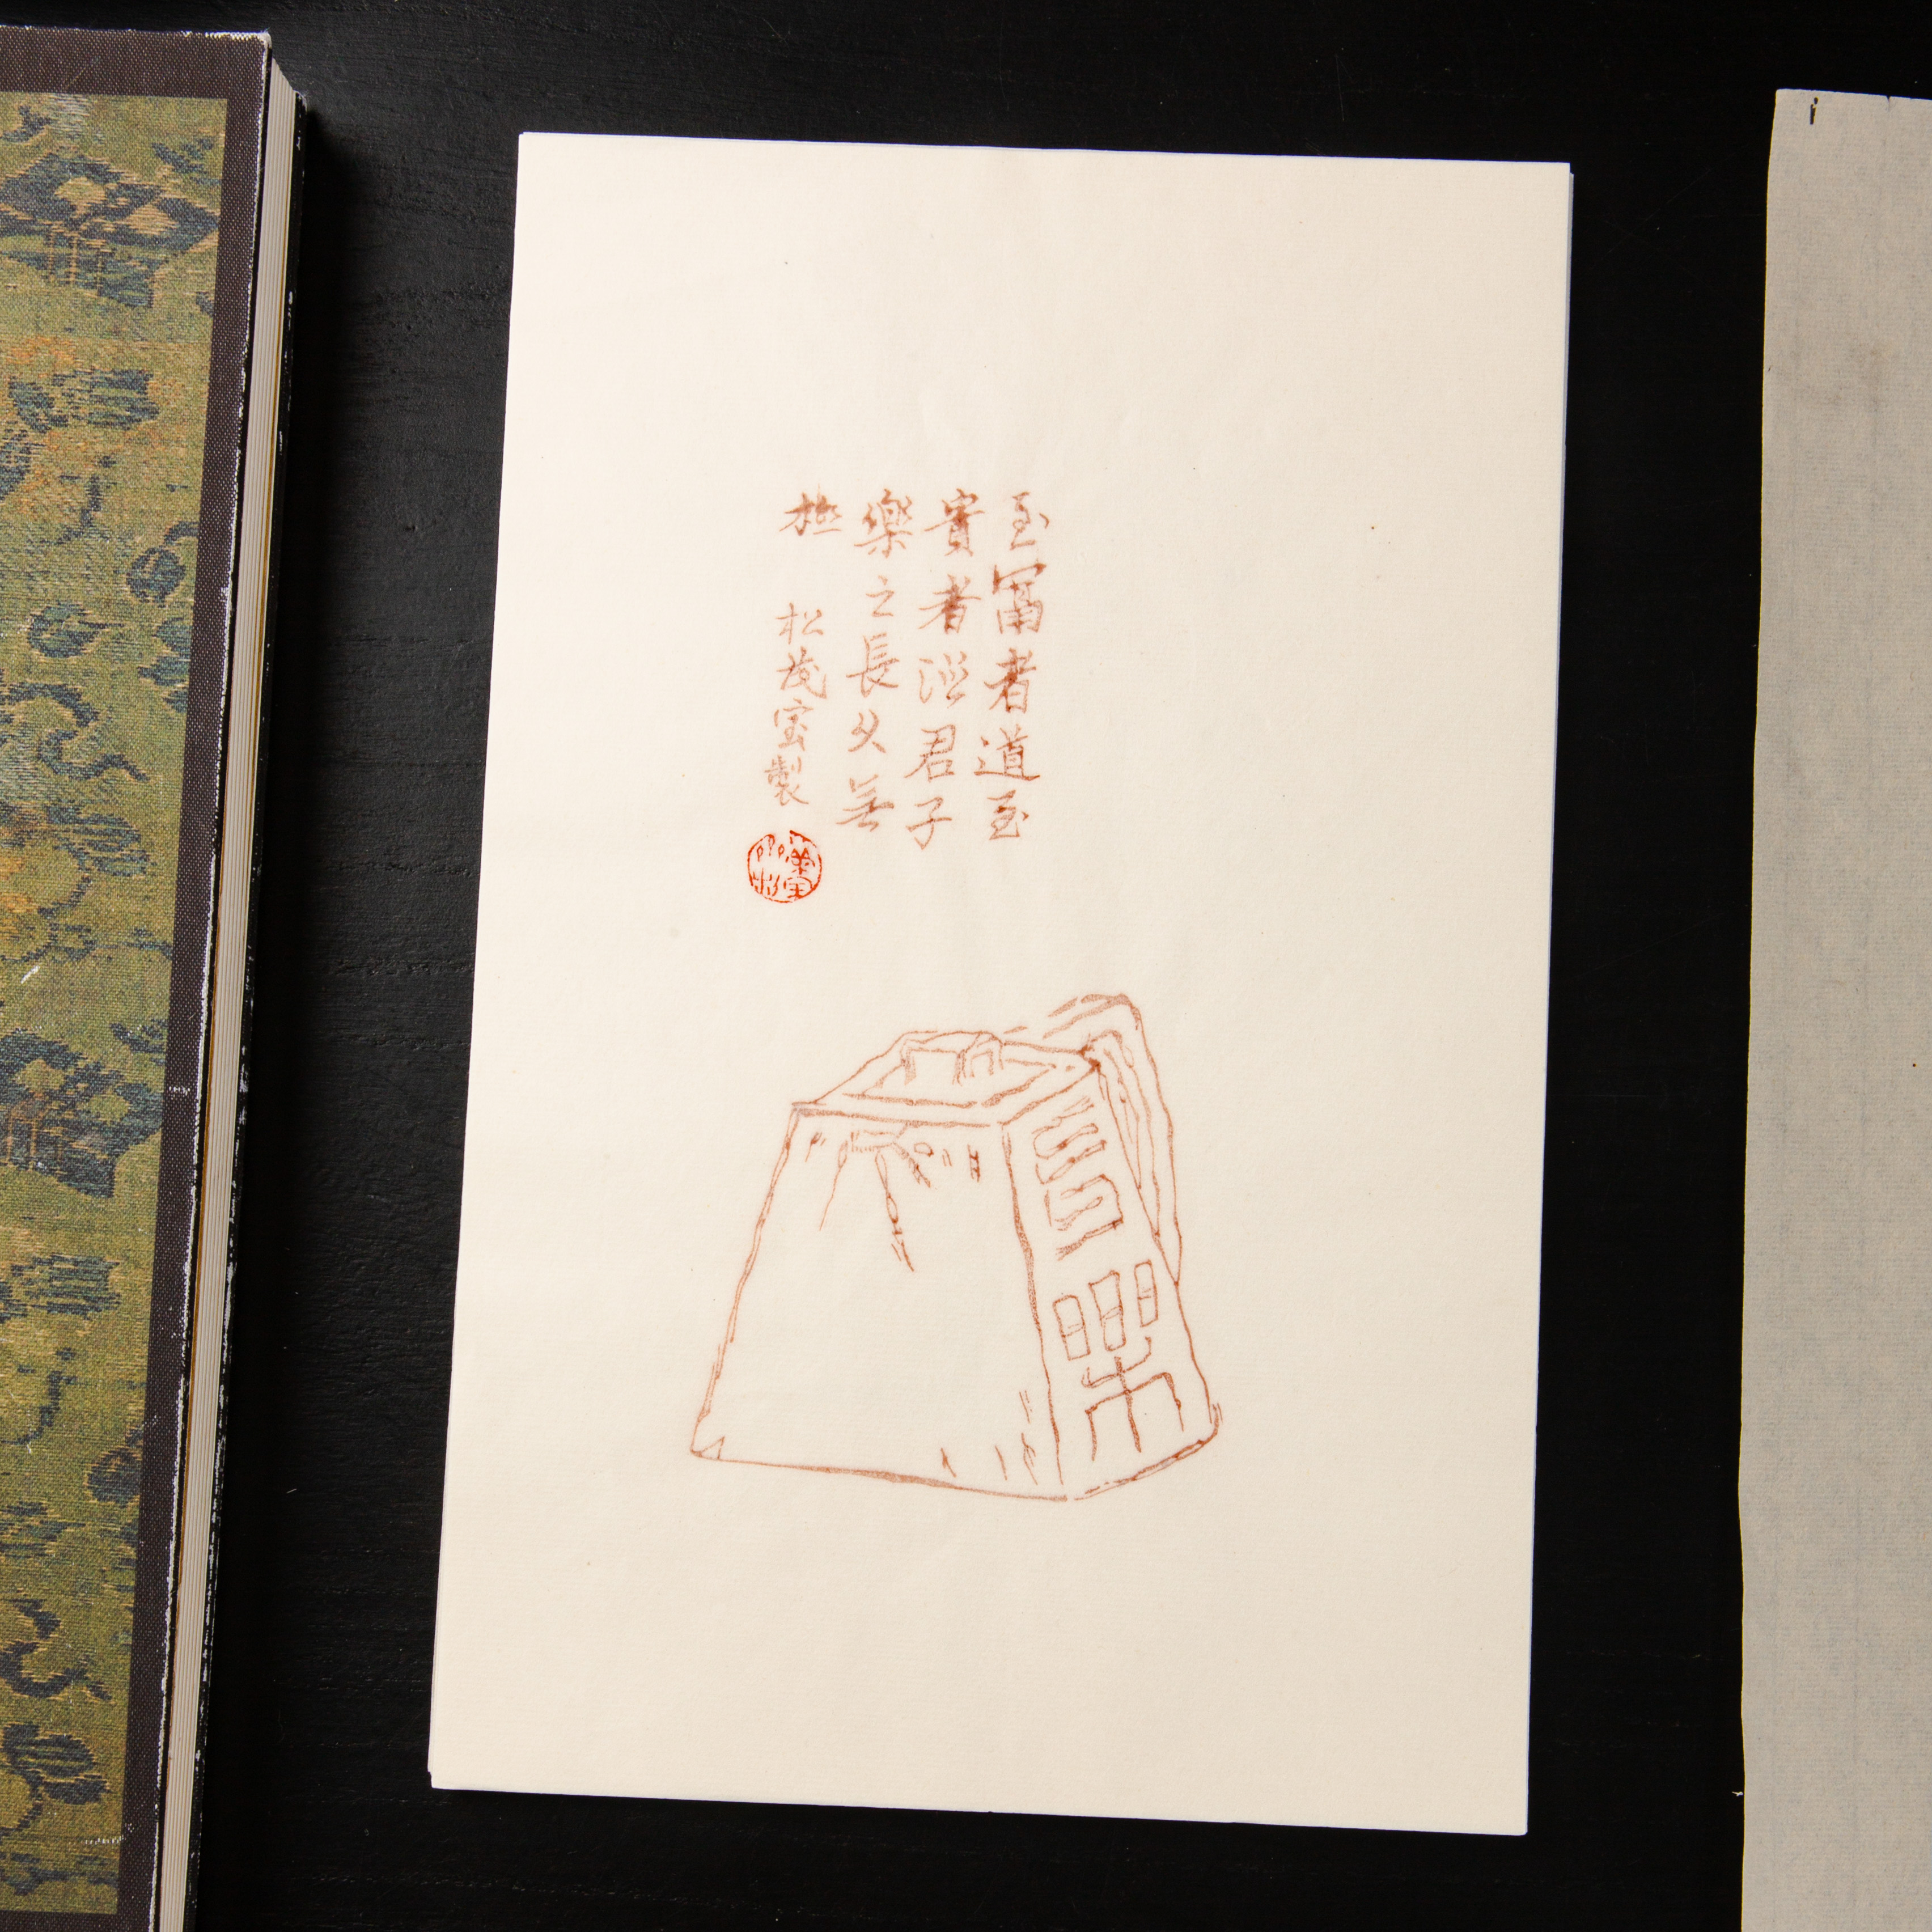 至富者道至
實者君子
樂之長久無
極
松茂室製